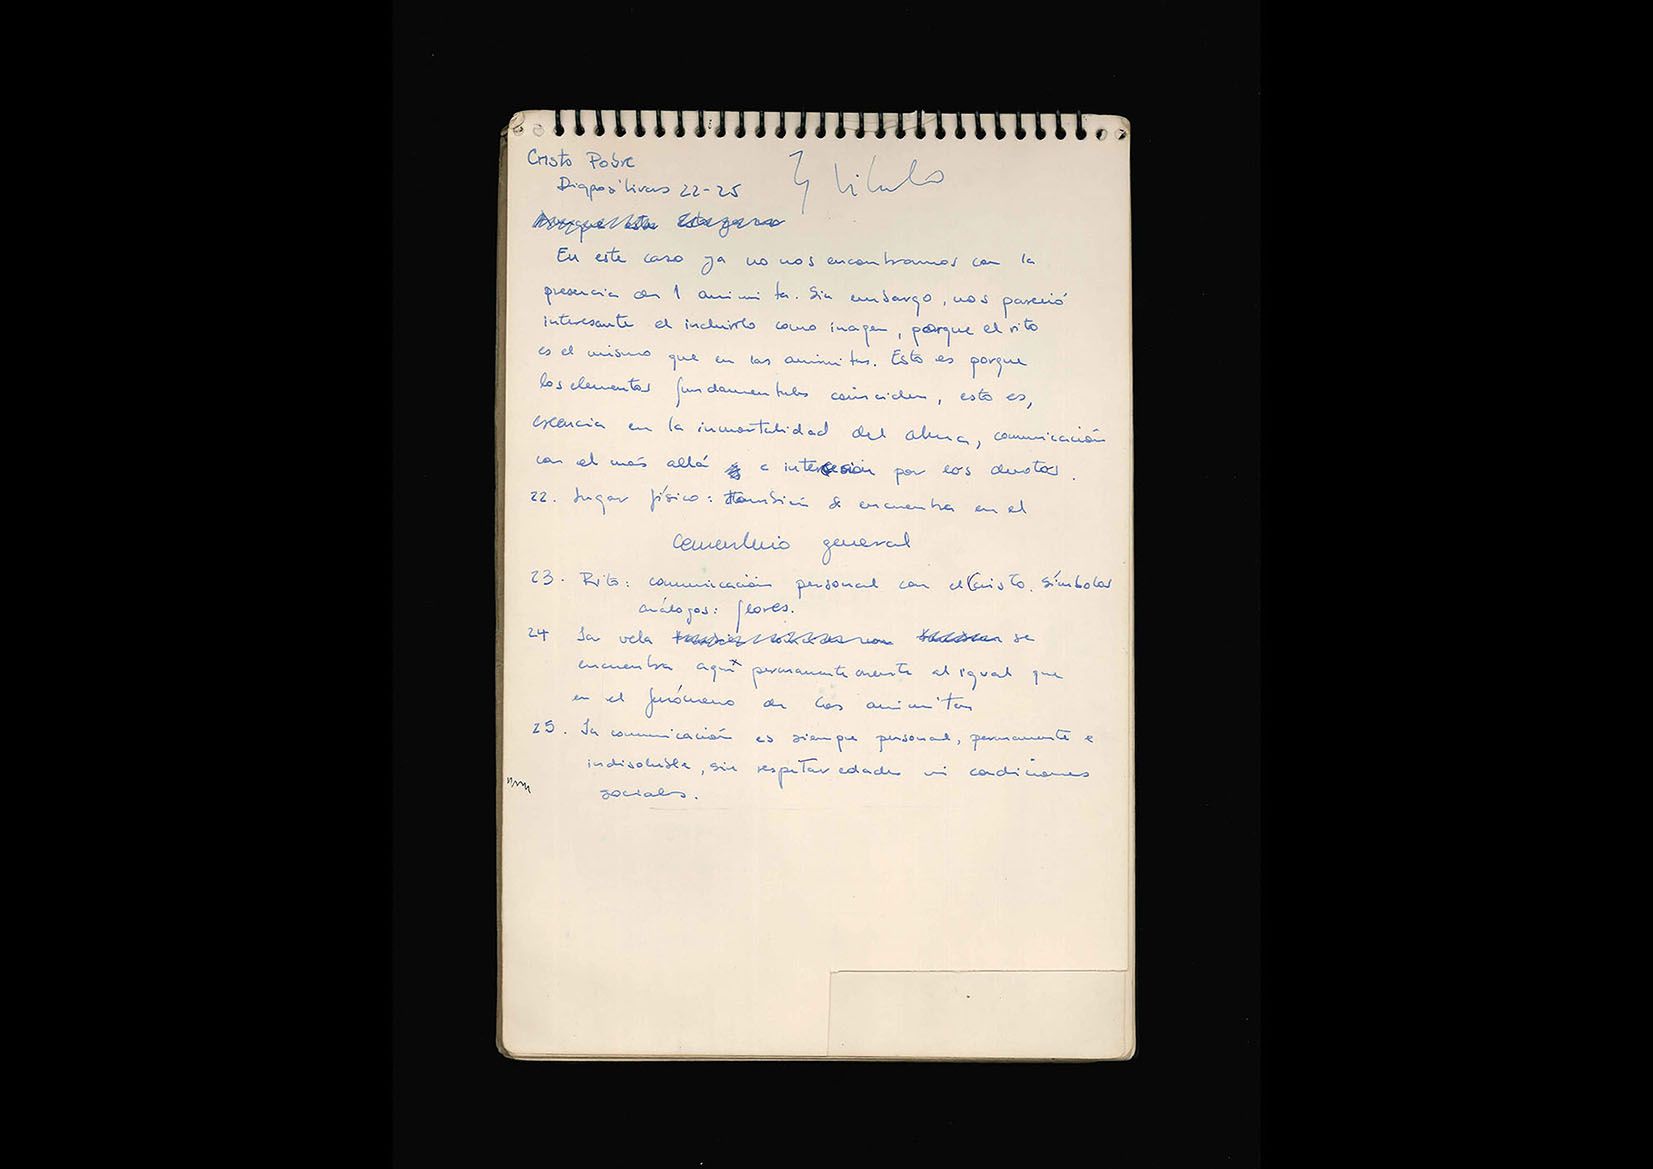 Cristo Pobre
título
Diapositivas 22-25
En este caso ya no nos encontramos con la
presencia de 1 animita. Sin embargo, nos pareció
interesante el incluirlo como imagen, porque el rito
es el mismo que en las animitas. Esto es porque
los elementos fundamentales coinciden, esto es,
creencia en la inmortalidad del alma, comunicación
con el más allá e por los deudos.
22. Lugar físico: también se encuentra en el
cementerio general
23. Rito: comunicación personal con el Cristo. Símbolos
análogos: flores.
24 La vela se
encuentra aquí permanentemente al igual que
en el fenómeno de las animitas
25. La comunicación es siempre personal, permanente e
indisoluble, sin respetar edades ni condiciones
sociales.